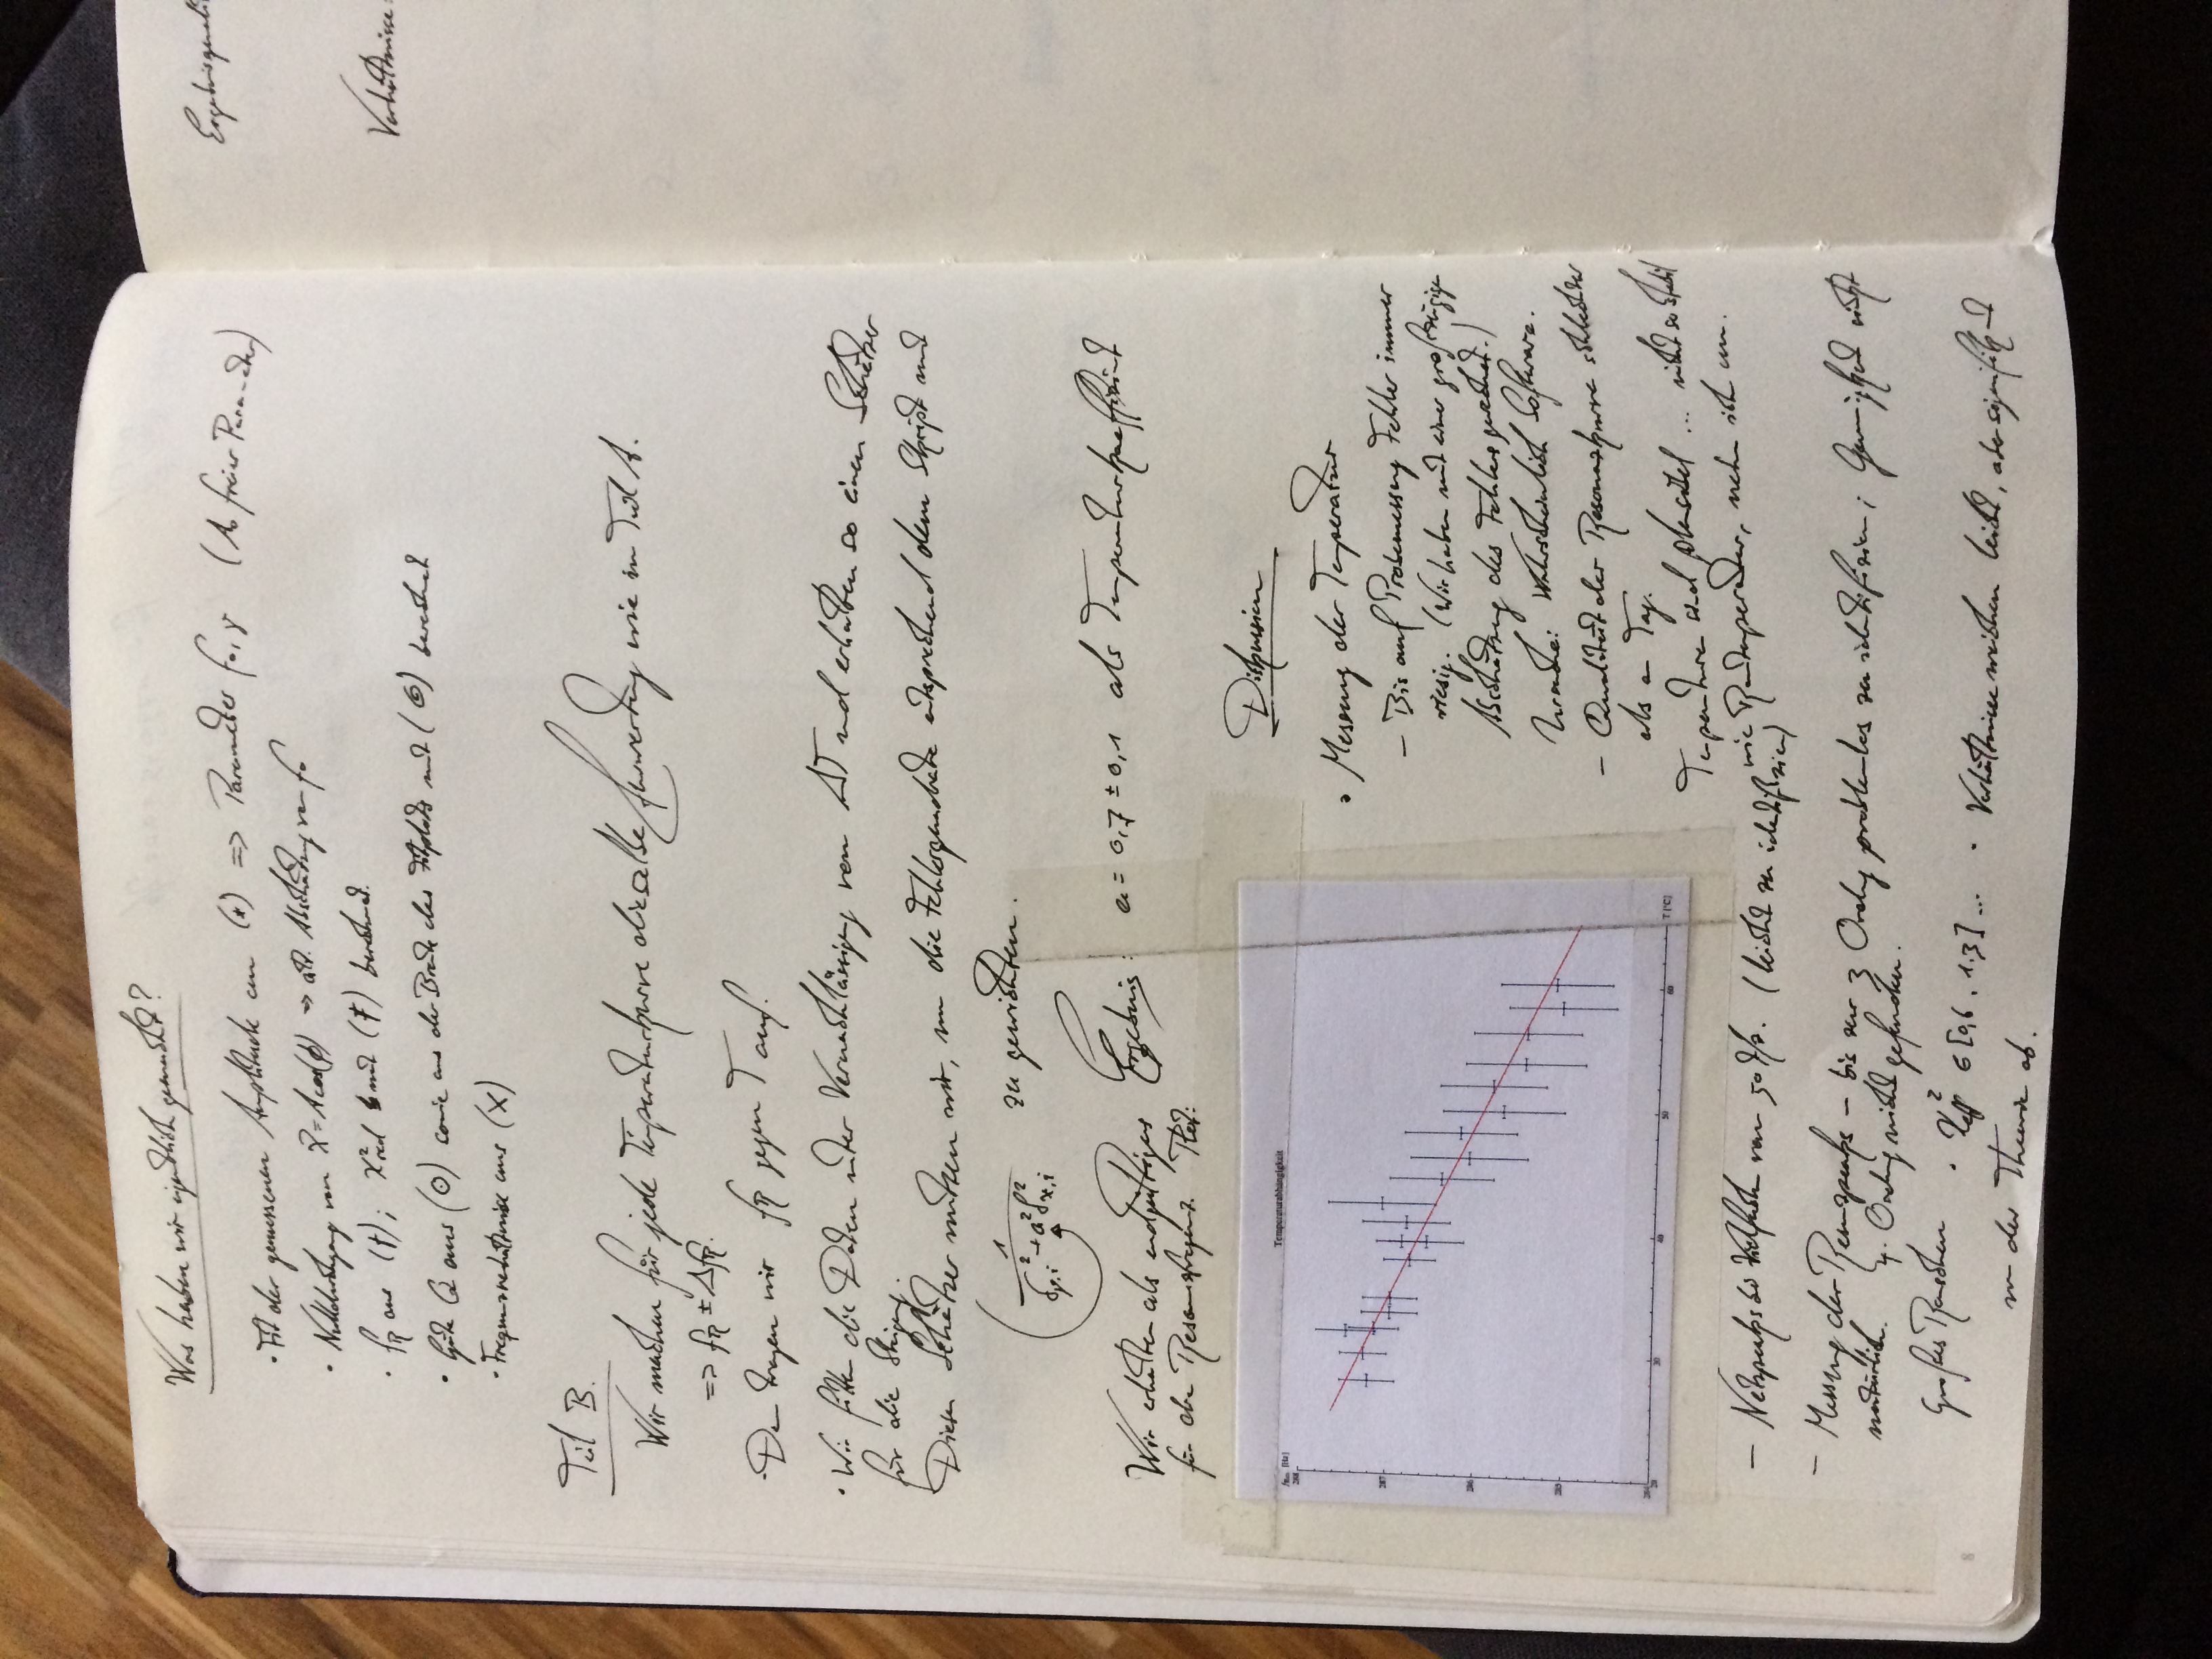 Was haben wir eigentlich gemacht?
· Fit der gemessenen Amplitude an (*) => Parameter f₀, γ (A₀ freier Parameter)
· f_R aus (†); χ²red mit (‡) berechnet.
· Güte Q aus (⊙) sowie aus der Breite des Fitplots mit (⊚) berechnet
· Frequenzverhältnisse aus (X)
Teil B.
Wir machen für jede Temperaturkurve dieselbe Auswertung wie in Teil A.
=> f_R ± Δf_R.
· Den tragen wir f_R gegen T auf.
· Wir fitten die Daten unter Vernachlässigung von ΔT und erhalten so einen Schätzer
für die Steigung.
Diesen Schätzer nutzen wir, um die Fehler entsprechend dem Skript mit
1 / (σ²y,i + a² σ²x,i) zu gewichten.
Wir erhalten als endgültiges Ergebnis: a = 0,7 ± 0,1 als Temperaturkoeffizient
für die Resonanzfrequenz. Plot:
Temperaturabhängigkeit
f [Hz]
288
287
286
285
284
20
30
40
50
60
T [°C]
Diskussion
· Messung der Temperatur
– Bis auf Probemessung Fehler immer
riesig. (Wir haben mit einer großzügigen
Abschätzung des Fehlers gerechnet.)
Ursache: Wahrscheinlich Software.
– Qualität der Resonanzkurve schlechter
als an Tag.
Temperaturen sind ... nicht so stabil
wie Raumtemperatur, nehm ich an.
– Netzpeaks bei Vielfachen von 50 Hz. (leicht zu identifizieren)
– Messung der Resonanzpeaks – bis zur 3 Ordng problemlos zu identifizieren; Genauigkeit nicht
natürlich. 4. Ordng nicht gefunden.
Großes Rauschen · χ²red ∈ [0,6, 1,3] ... · Verhältnisse weichen leicht, aber signifikant
von der Theorie ab.
8
Verhältnisse: